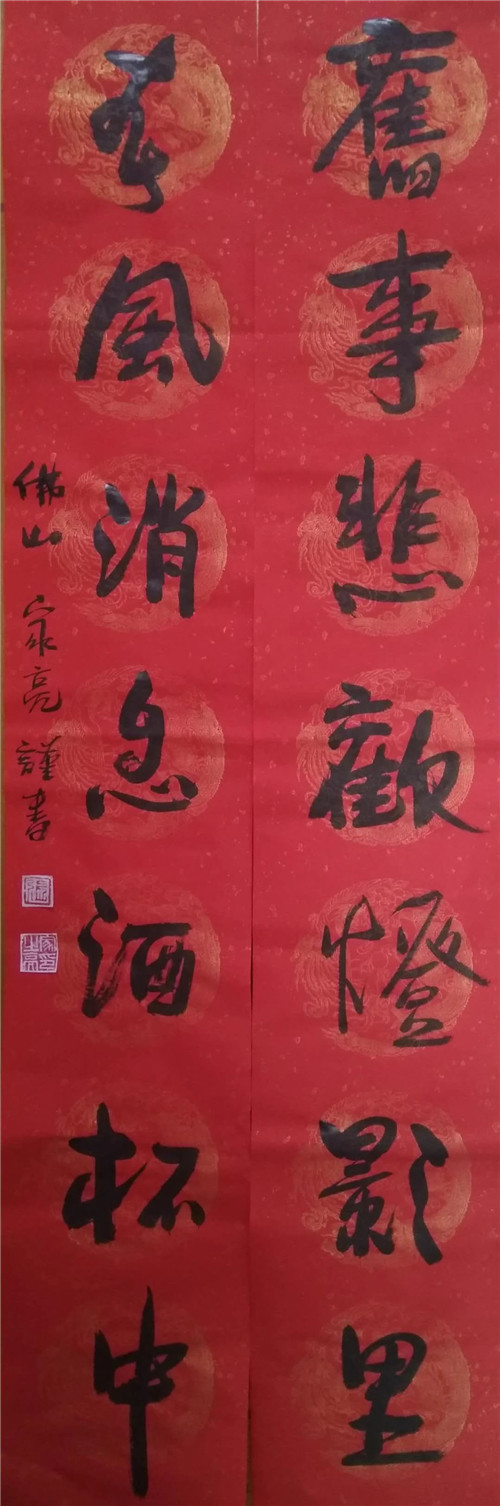 舊事悲歡燈影里
春風消息酒杯中
佛山 家亮 謹書